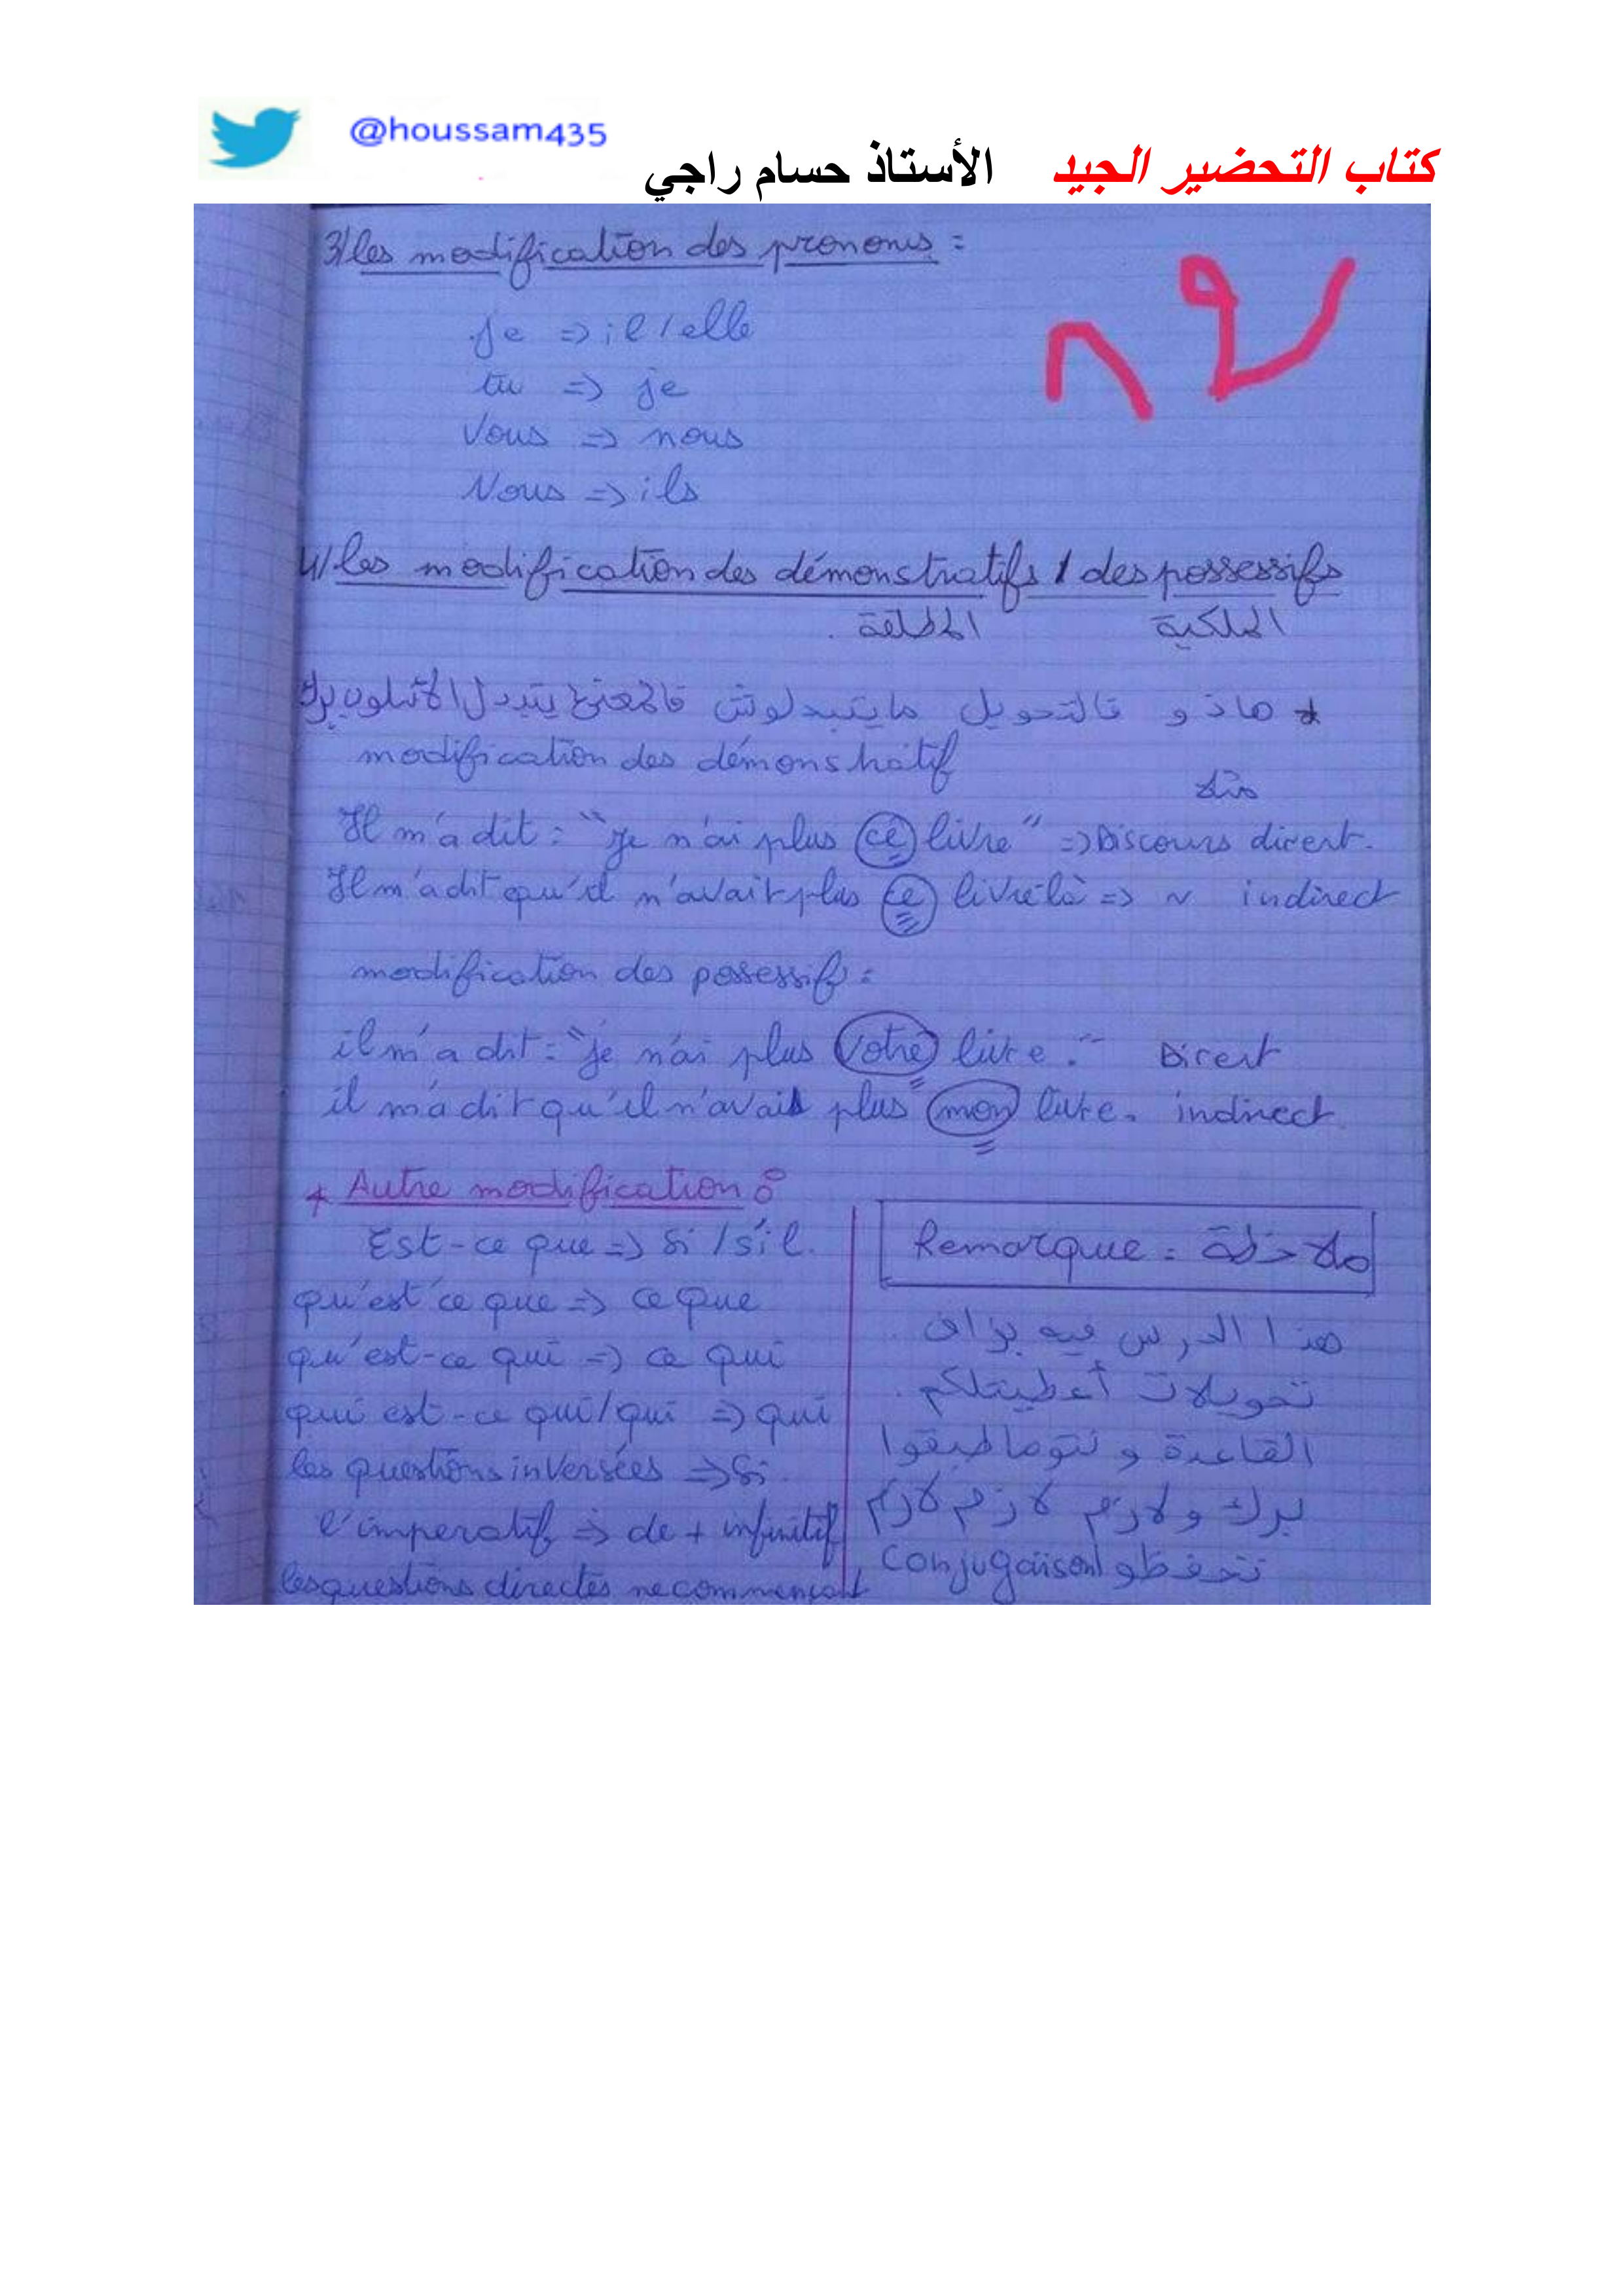 @houssam435
كتاب التحضير الجيد الأستاذ حسام راجي
3/ les modification des pronoms :
je => il / elle
tu => je
Vous => nous
Nous => ils
4/ les modification des démonstratifs / des possessifs
المطلقة الملكية
* هاذو فالتحويل مايتبدلوش فالمعنى يتبدل الأسلوب برك
modification des démonstratif
مثلا
Il m'a dit : "Je n'ai plus ce livre" => Discours direct.
Il m'a dit qu'il n'avait plus ce livre là => ~ indirect
modification des possessif :
il m'a dit : "je n'ai plus votre livre." Direct
il m'a dit qu'il n'avait plus mon livre. indirect
* Autre modification :
Est-ce que => si / s'il.
qu'est ce que => ce que
qu'est-ce qui => ce qui
qui est-ce qui / qui => qui
les questions inversées => si
l'imperatif => de + infinitif
les questions directes ne commençant
Remarque : ملاحظة
هذا الدرس فيه بزاف
تحويلات أعطيتلكم
القاعدة و نتوما طبقوا
برك ولازم لازم لازم
تحفظو conjugaison